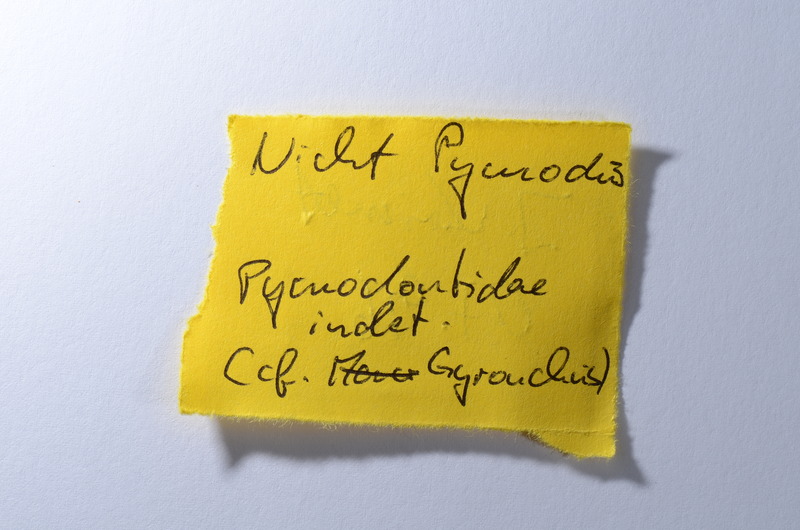 Nicht Pycnodus
Pycnodontidae
indet.
(cf. Gyronchus)